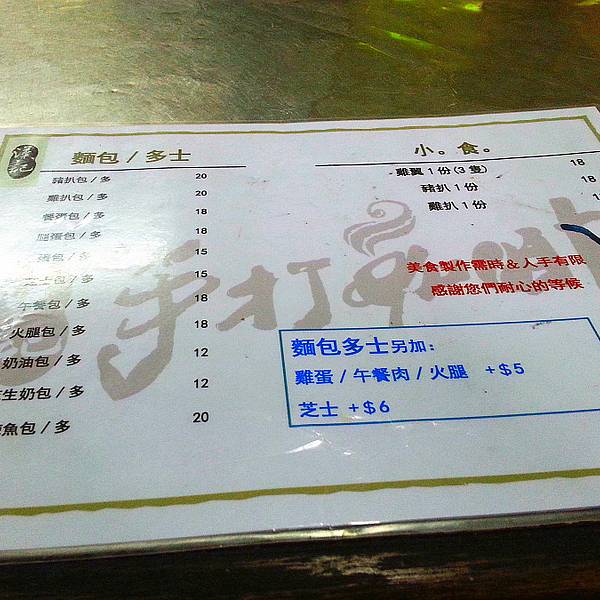 漢記
麵包 / 多士
豬扒包 / 多 20
雞扒包 / 多 20
餐肉包 / 多 18
腿蛋包 / 多 18
蛋包 / 多 15
芝士包 / 多 15
午餐包 / 多 18
火腿包 / 多 18
奶油包 / 多 12
生奶包 / 多 12
魚包 / 多 20
小。食。
雞翼 1 份 (3 隻) 18
豬扒 1 份 18
雞扒 1 份
手打
美食製作需時 & 人手有限
感謝您們耐心的等候
麵包多士另加:
雞蛋 / 午餐肉 / 火腿 +$5
芝士 +$6